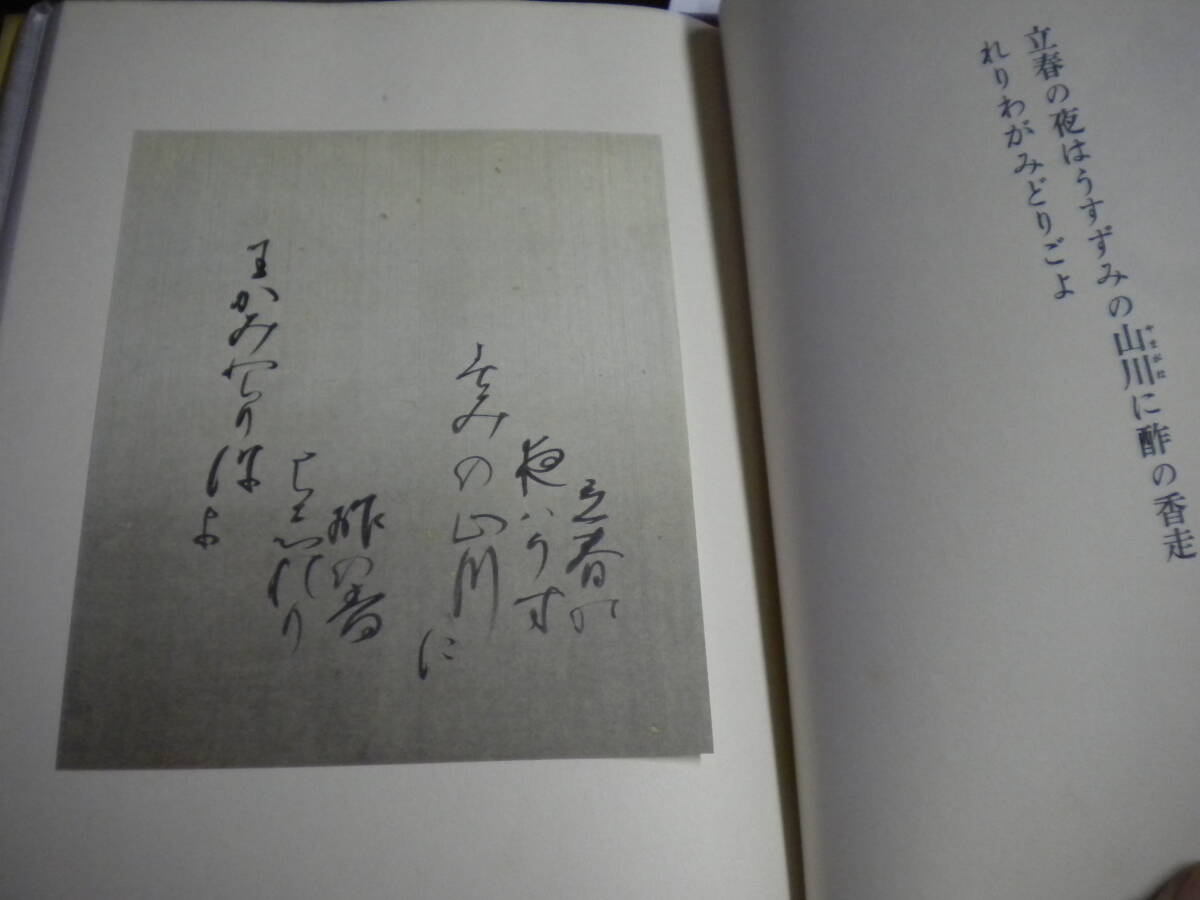 立春の夜はうすずみの山川に酢の香走
やまがは
れりわがみどりごよ
立春の
夜はうす
ずみの山川
に
酢の香
はしれり
わかみとりこ
よ